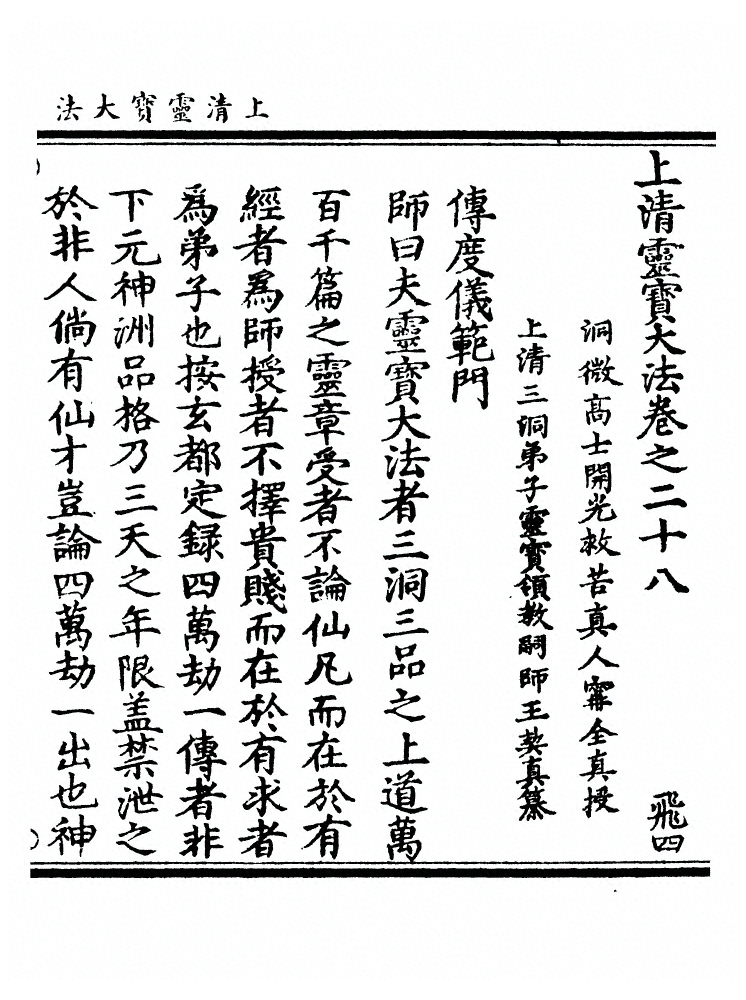 上清靈寶大法
上清靈寶大法卷之二十八
飛四
洞微高士開光救苦真人甯全真授
上清三洞弟子靈寶領教嗣師王契真纂
傳度儀範門
師曰夫靈寶大法者三洞三品之上道萬
百千篇之靈章受者不論仙凡而在於有
經者爲師授者不擇貴賤而在於有求者
爲弟子也按玄都定録四萬劫一傳者非
下元神洲品格乃三天之年限盖禁泄之
於非人倘有仙才豈論四萬劫一出也神